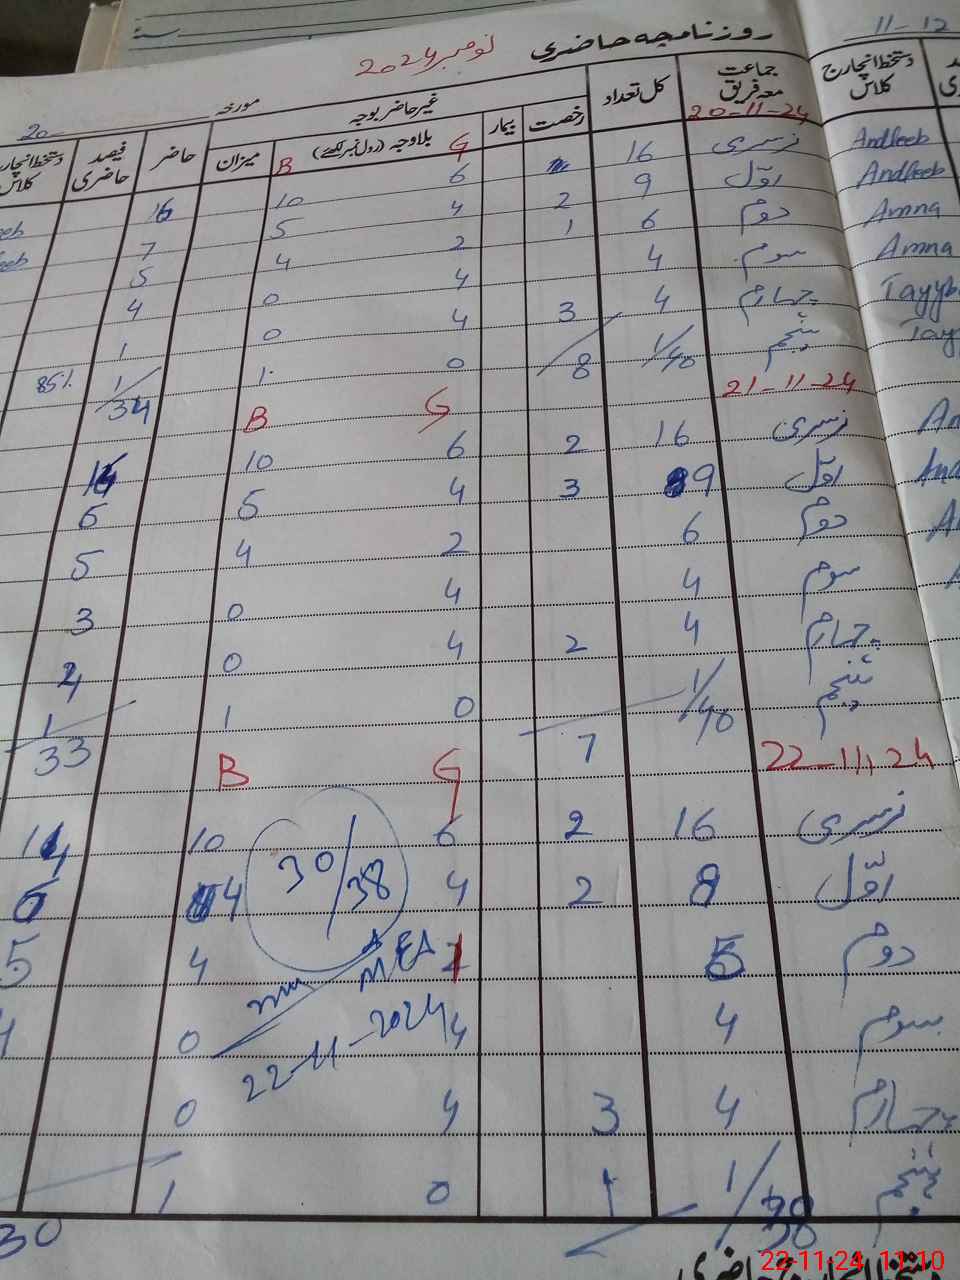 11-12
روزنامچہ حاضری نومبر 2024
جماعت معہ فریق کل تعداد غیر حاضر بوجہ مورخہ 20
رخصت بیمار بلاوجہ (رول نمبر لکھے) میزان حاضر فیصد حاضری دستخط انچارج کلاس
دستخط انچارج کلاس
20-11-24 G B
نرسری 16 6 10 16
اوّل 9 2 4 5 7
دوم 6 1 2 4 5
سوم 4 4 0 4
چہارم 4 3 4 0 1
پنجم 1 0 1 1
40 8 34 85%
Andleeb
Andleeb
Amna
Amna
21-11-24 G B
نرسری 16 2 6 10
اوّل 9 3 4 5 6
دوم 6 2 4 5
سوم 4 4 0 3
چہارم 4 2 4 0 2
پنجم 1 0 1 1
40 7 33
22-11-24 G B
نرسری 16 2 6 10 14
اوّل 8 2 4 4 6
دوم 5 1 4 5
سوم 4 4 0 4
چہارم 4 3 4 0
پنجم 1 1 0 1
38 30
30/38
MEA
22-11-2024
22-11-24 11:10